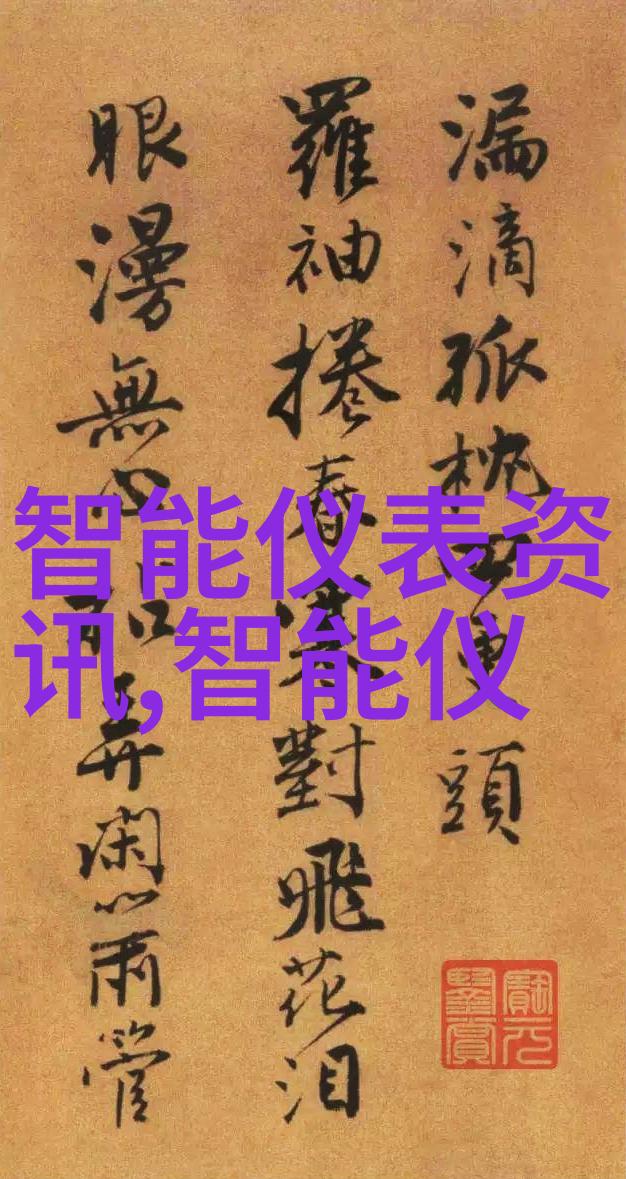 漏滴孤枕四更頭
羅袖捲春寒對飛花泪
眼漫無心弄閑管
智能仪表资
讯,智能仪